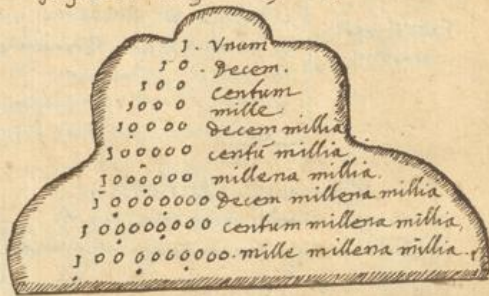 1. Vnum
10 .Decem.
100 centum
1000 mille
10000 decem millia
100000 centū millia
1000000 millena millia.
10000000 Decem millena millia
100000000 centum millena millia,
1000000000. mille millena millia.